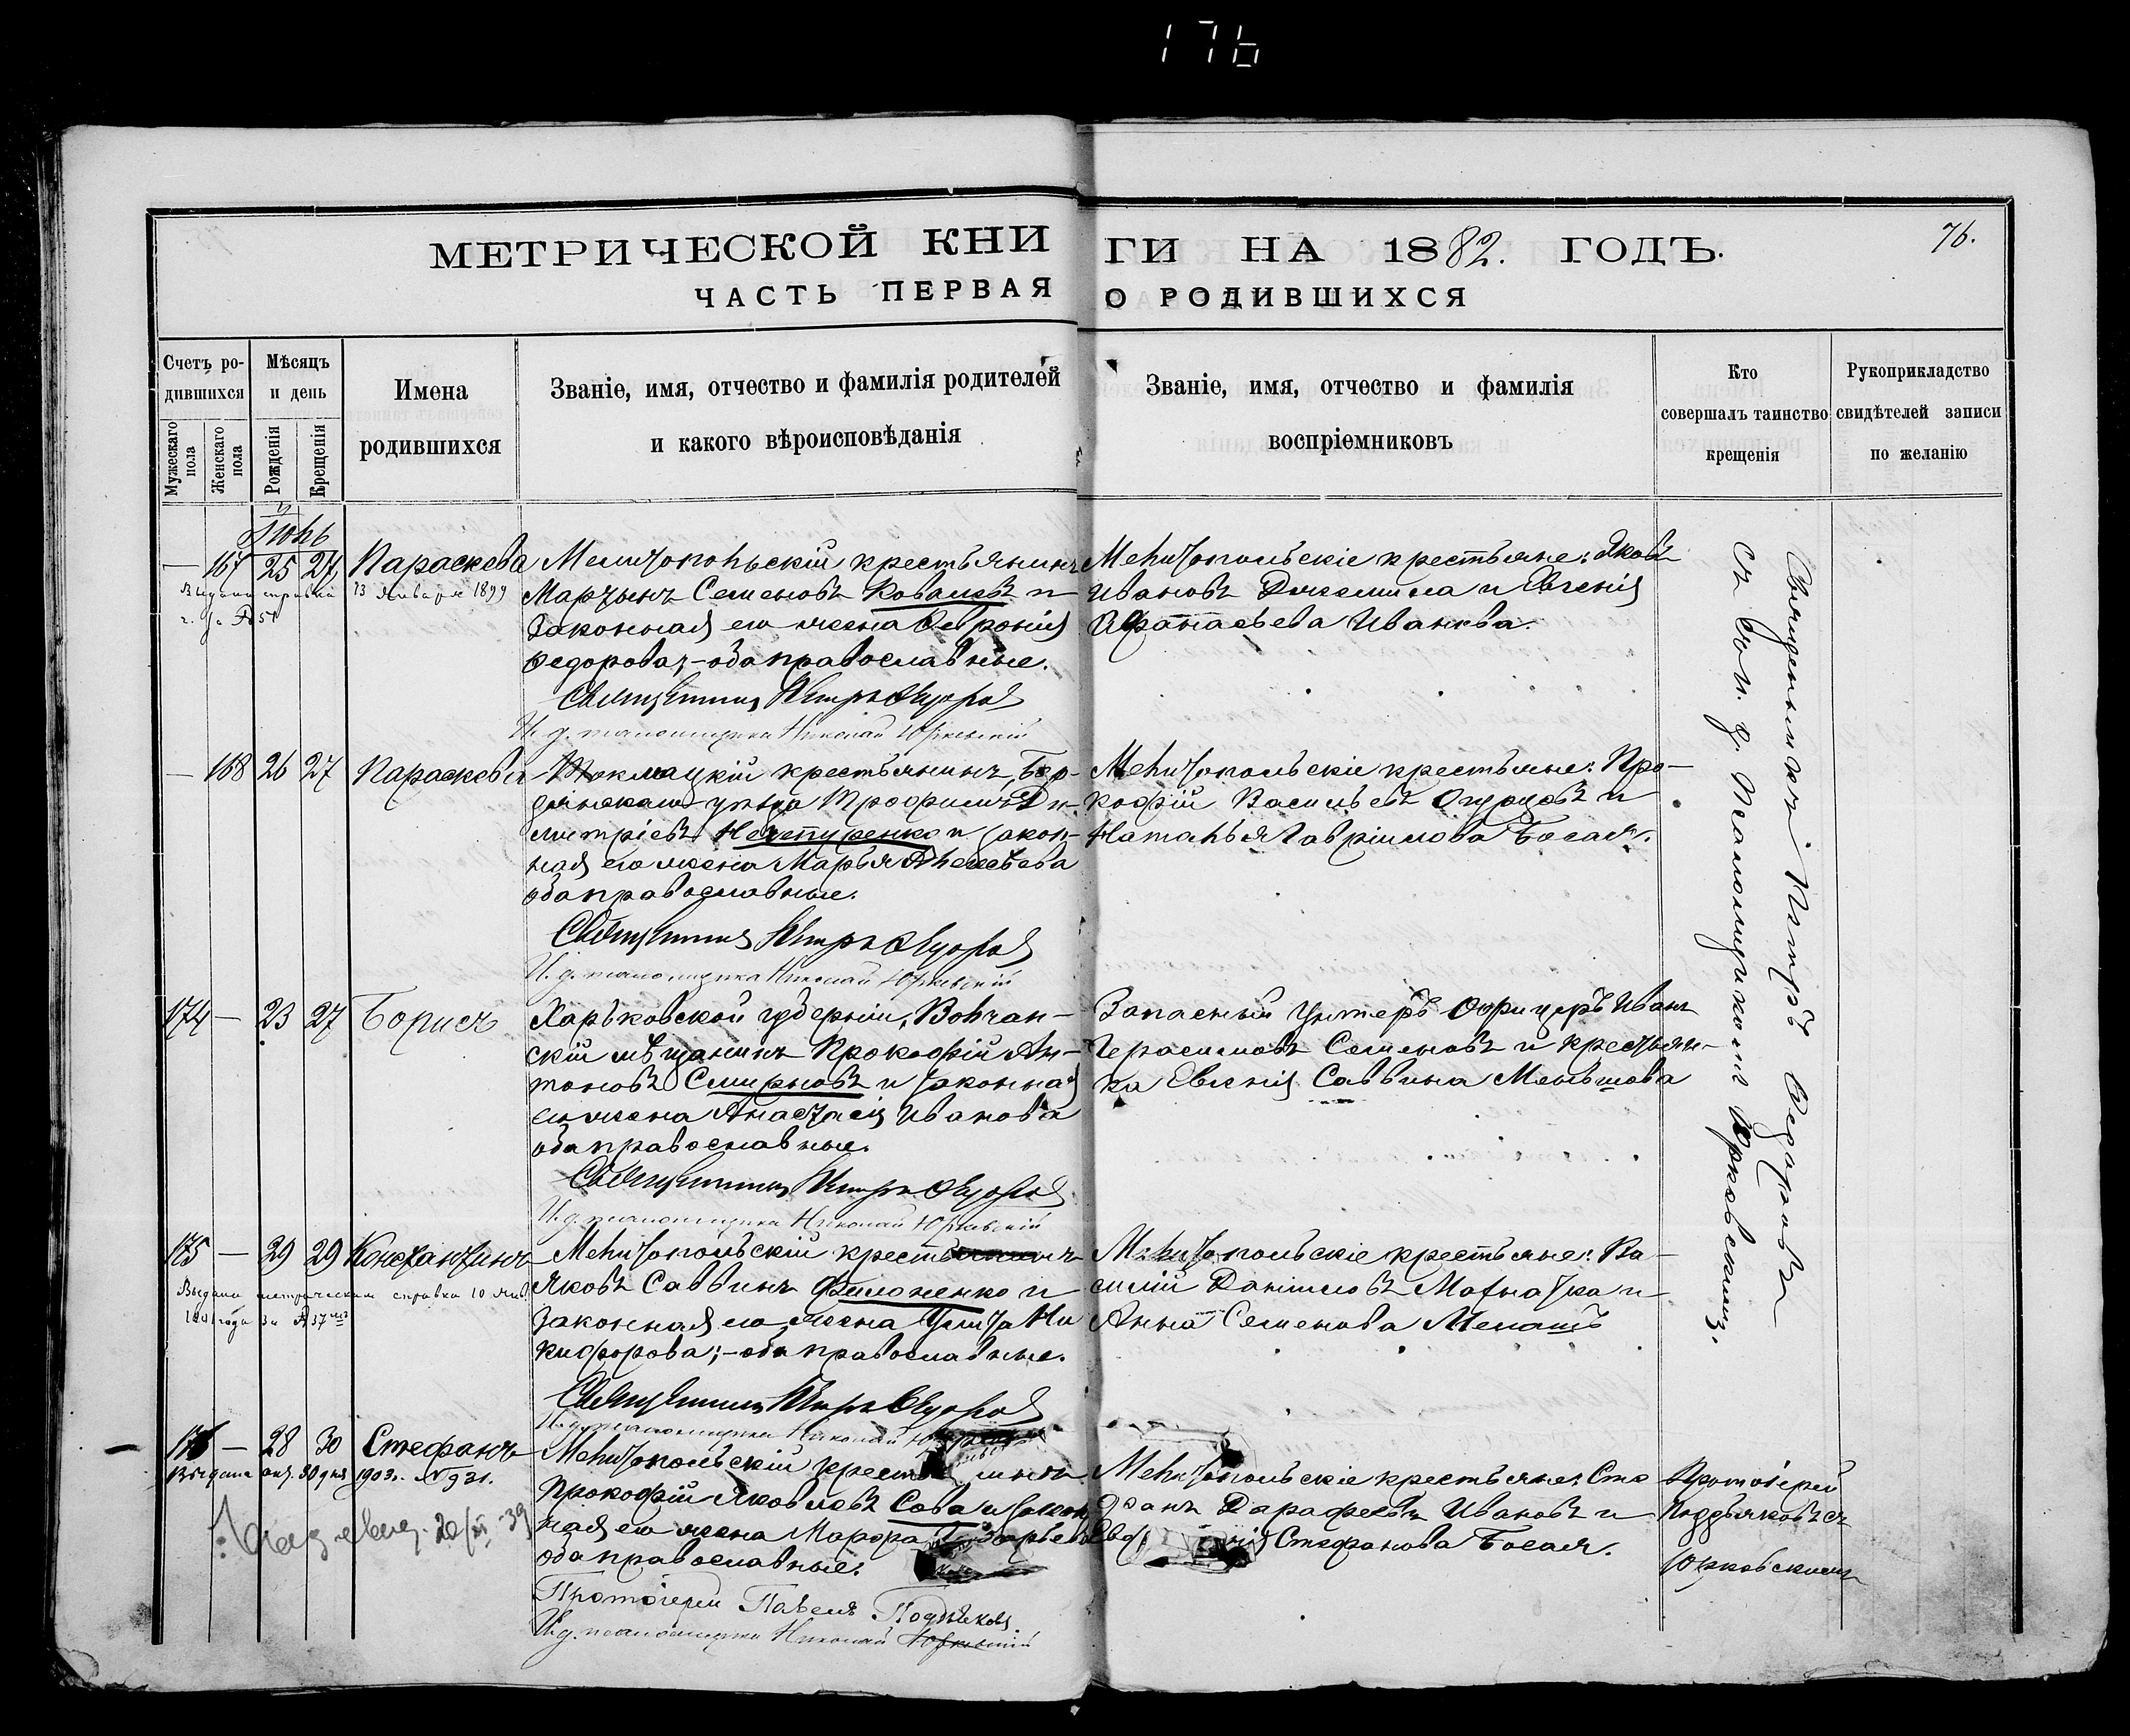 176
МЕТРИЧЕСКОЙ КНИ ГИ НА 1882. ГОДЪ.
76.
ЧАСТЬ ПЕРВАЯ О РОДИВШИХСЯ
Счетъ ро-
дившихся
Мужескаго пола
Женскаго пола
Мѣсяцъ
и день
Рожденія
Крещенія
Имена
родившихся
Званіе, имя, отчество и фамилія родителей
и какого вѣроисповѣданія
Званіе, имя, отчество и фамилія
воспріемниковъ
Кто
совершалъ таинство
крещенія
Рукоприкладство
свидѣтелей записи
по желанію
Іюнь
— 167 25 27 Параскева
13 Января 1899
г. за № 51
Мелитопольскій крестьянинъ
Мартынъ Семеновъ Ковалевъ и
законная его жена Феѵронія
Ѳедорова; – оба православные.
Священникъ Петръ Ѳедоровъ
И. д. псаломщика Николай Юрковскій
Мелитопольскіе крестьяне: Яковъ
Ивановъ и Евгенія
Афанасьева Иванова.
Священникъ Петръ Ѳедоровъ
съ и. д. псаломщикомъ Юрковскимъ.
— 168 26 27 Параскева
Токмацкій крестьянинъ, Бер-
дянскаго уѣзда Трофимъ Ди-
митріевъ Нечпуренко и закон-
ная его жена Марья Алексѣева
оба православные.
Священникъ Петръ Ѳедоровъ
И. д. псаломщика Николай Юрковскій
Мелитопольскіе крестьяне: Про-
кофій Васильевъ Огурцовъ и
Наталья Гавріилова Босая.
174 — 23 27 Борисъ
Харьковской губерніи, Волчан-
скій мѣщанинъ Прокофій Ан-
тоновъ Смирновъ и законная
его жена Анастасія Иванова
оба православные.
Священникъ Петръ Ѳедоровъ
И. д. псаломщика Николай Юрковскій
Запасный Унтеръ-Офицеръ Иванъ
Герасимовъ Семеновъ и крестьян-
ка Евгенія Саввина Меньшова
175 — 29 29 Константинъ
Выдана метрическая справка 10 Янв.
года за № 37
Мелитопольскій крестьянинъ
Яковъ Саввинъ Филоненко и
законная его жена Улита Ни
кифорова; – оба православные.
Священникъ Петръ Ѳедоровъ
И. д. псаломщика Николай
Мелитопольскіе крестьяне: Ва-
силій Даниловъ и
Анна Семенова
176 — 28 30 Стефанъ
Выдана 30 дня 1903 г. № 931.
20/XI -39
Мелитопольскій
Прокофій Яковлевъ Сова и закон
ная его жена Марфа
оба православные.
Протоіерей Павелъ Поддьяковъ.
И. д. псаломщика Николай Юрковскій
Мелитопольскіе крестьяне: Сте
фанъ Ивановъ и
Стефанова Босая.
Протоіерей
Поддьяковъ съ
Юрковскимъ